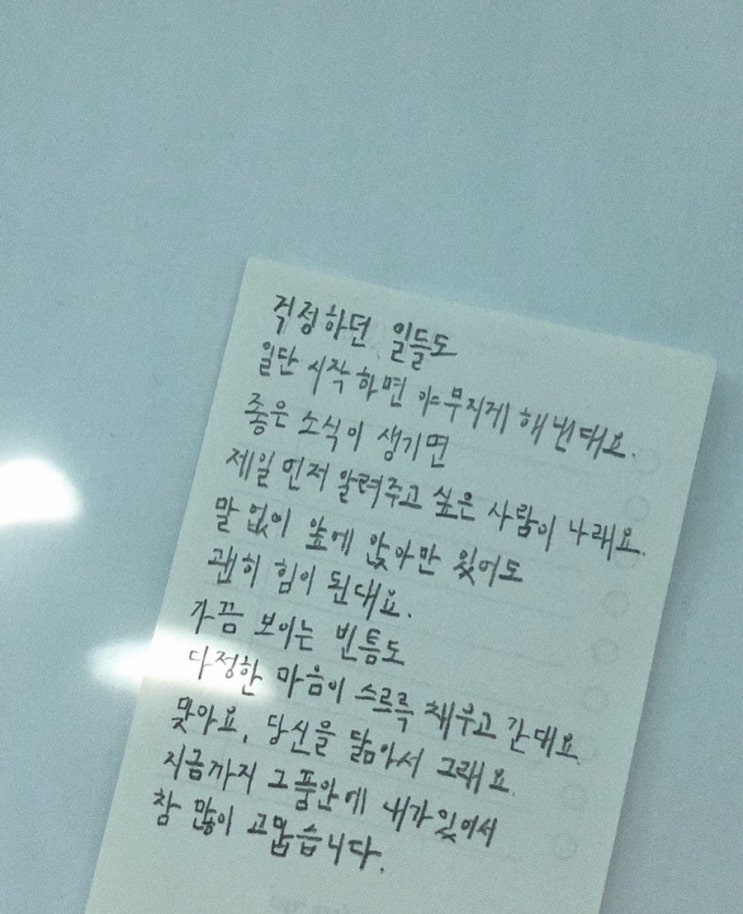 걱정하던 일들도
일단 시작하면 야무지게 해낸대요.
좋은 소식이 생기면
제일 먼저 알려주고 싶은 사람이 나래요.
말 없이 앞에 앉아만 있어도
괜히 힘이 된대요.
가끔 보이는 빈틈도
다정한 마음이 스르륵 채우고 간대요.
맞아요, 당신을 닮아서 그래요.
지금까지 그 품안에 내가 있어서
참 많이 고맙습니다.